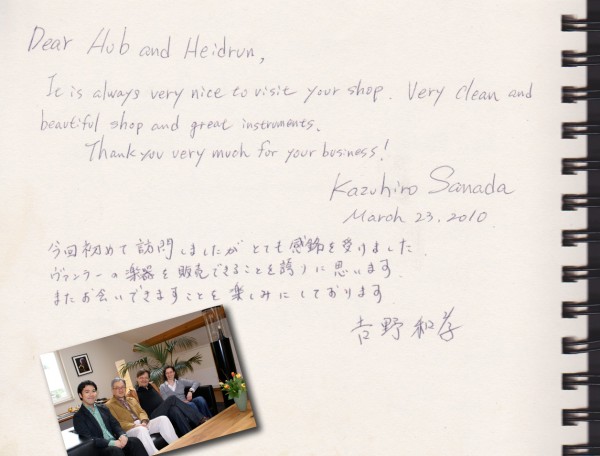 Dear Hub and Heidrun,
It is always very nice to visit your shop. Very clean and
beautiful shop and great instruments.
Thank you very much for your business!
Kazuhiro Sanada
March 23, 2010
今回初めて訪問しましたがとても感銘を受けました.
ヴァンラーの楽器を販売できることを誇りに思います.
またお会いできますことを楽しみにしております
吉野和孝